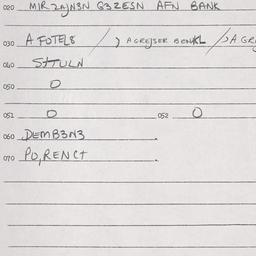 020 MIR2AJN3N G3ZESN AFN BANK
030 A FOTEL8 / ) AGREJSER BENKL / ) A GR
040 SHTULN
050 0
051 0 052 0
060 DEMB3N3
070 PO,RENCT